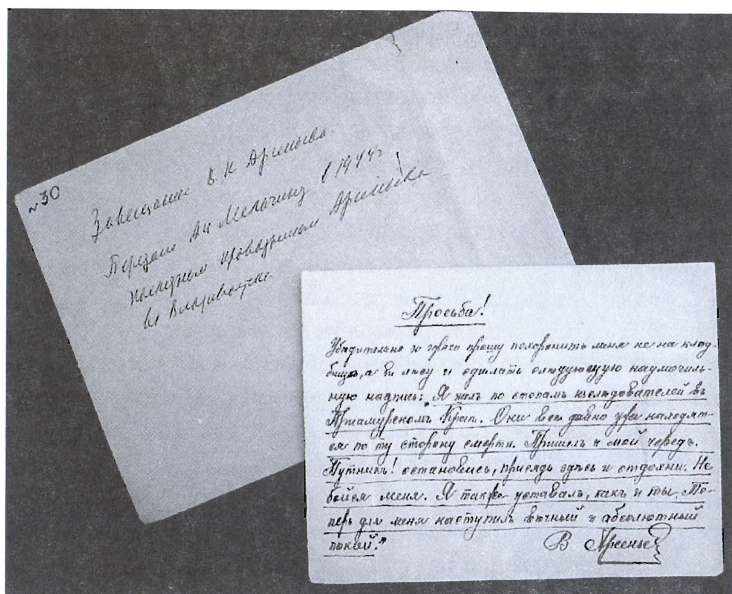 №30
Завещание В. К Арсеньева
Передано
1944 г.
проводником Арсеньева
из Владивостока
Просьба!
Убѣдительно и горячо прошу похоронить меня не на клад-
бищѣ, а въ лѣсу и сдѣлать слѣдующую надмогиль-
ную надпись: „Я шелъ по стопамъ изслѣдователей въ
Приамурскомъ Краѣ. Они всѣ давно уже находят-
ся по ту сторону смерти. Пришелъ и мой чередъ.
Путникъ! остановись, присядь здѣсь и отдохни. Не
бойся меня. Я также уставалъ, какъ и ты. Те-
перь для меня наступилъ вѣчный и абсолютный
покой."
В Арсеньев